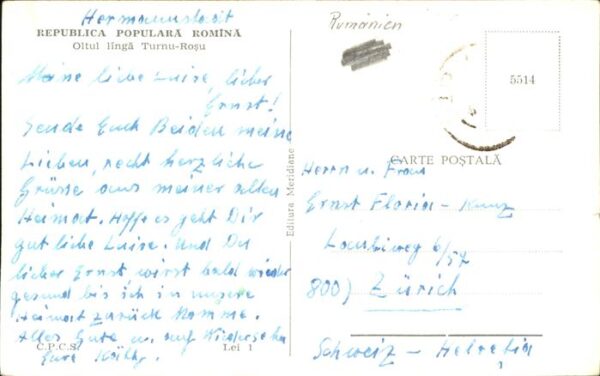 Hermannstadt
REPUBLICA POPULARĂ ROMÎNĂ
Oltul lîngă Turnu-Roșu
Meine liebe Luise, lieber
Ernst!
Sende Euch Beiden meine
Lieben, recht herzliche
Grüsse aus meiner alten
Heimat. Hoffe es geht Dir
gut liebe Luise. Und Du
lieber Ernst wirst bald wieder
gesund bis ich in unsere
Heimat zurück komme.
Alles Gute u. auf Wiedersehn
Eure
C.P.C.S. Lei 1
Editura Meridiane
Rumänien
5514
CARTE POȘTALĂ
Herrn u. Frau
Ernst Florin - Kunz
Laubiweg 6/57
800) Zürich
Schweiz - Helvetia
1